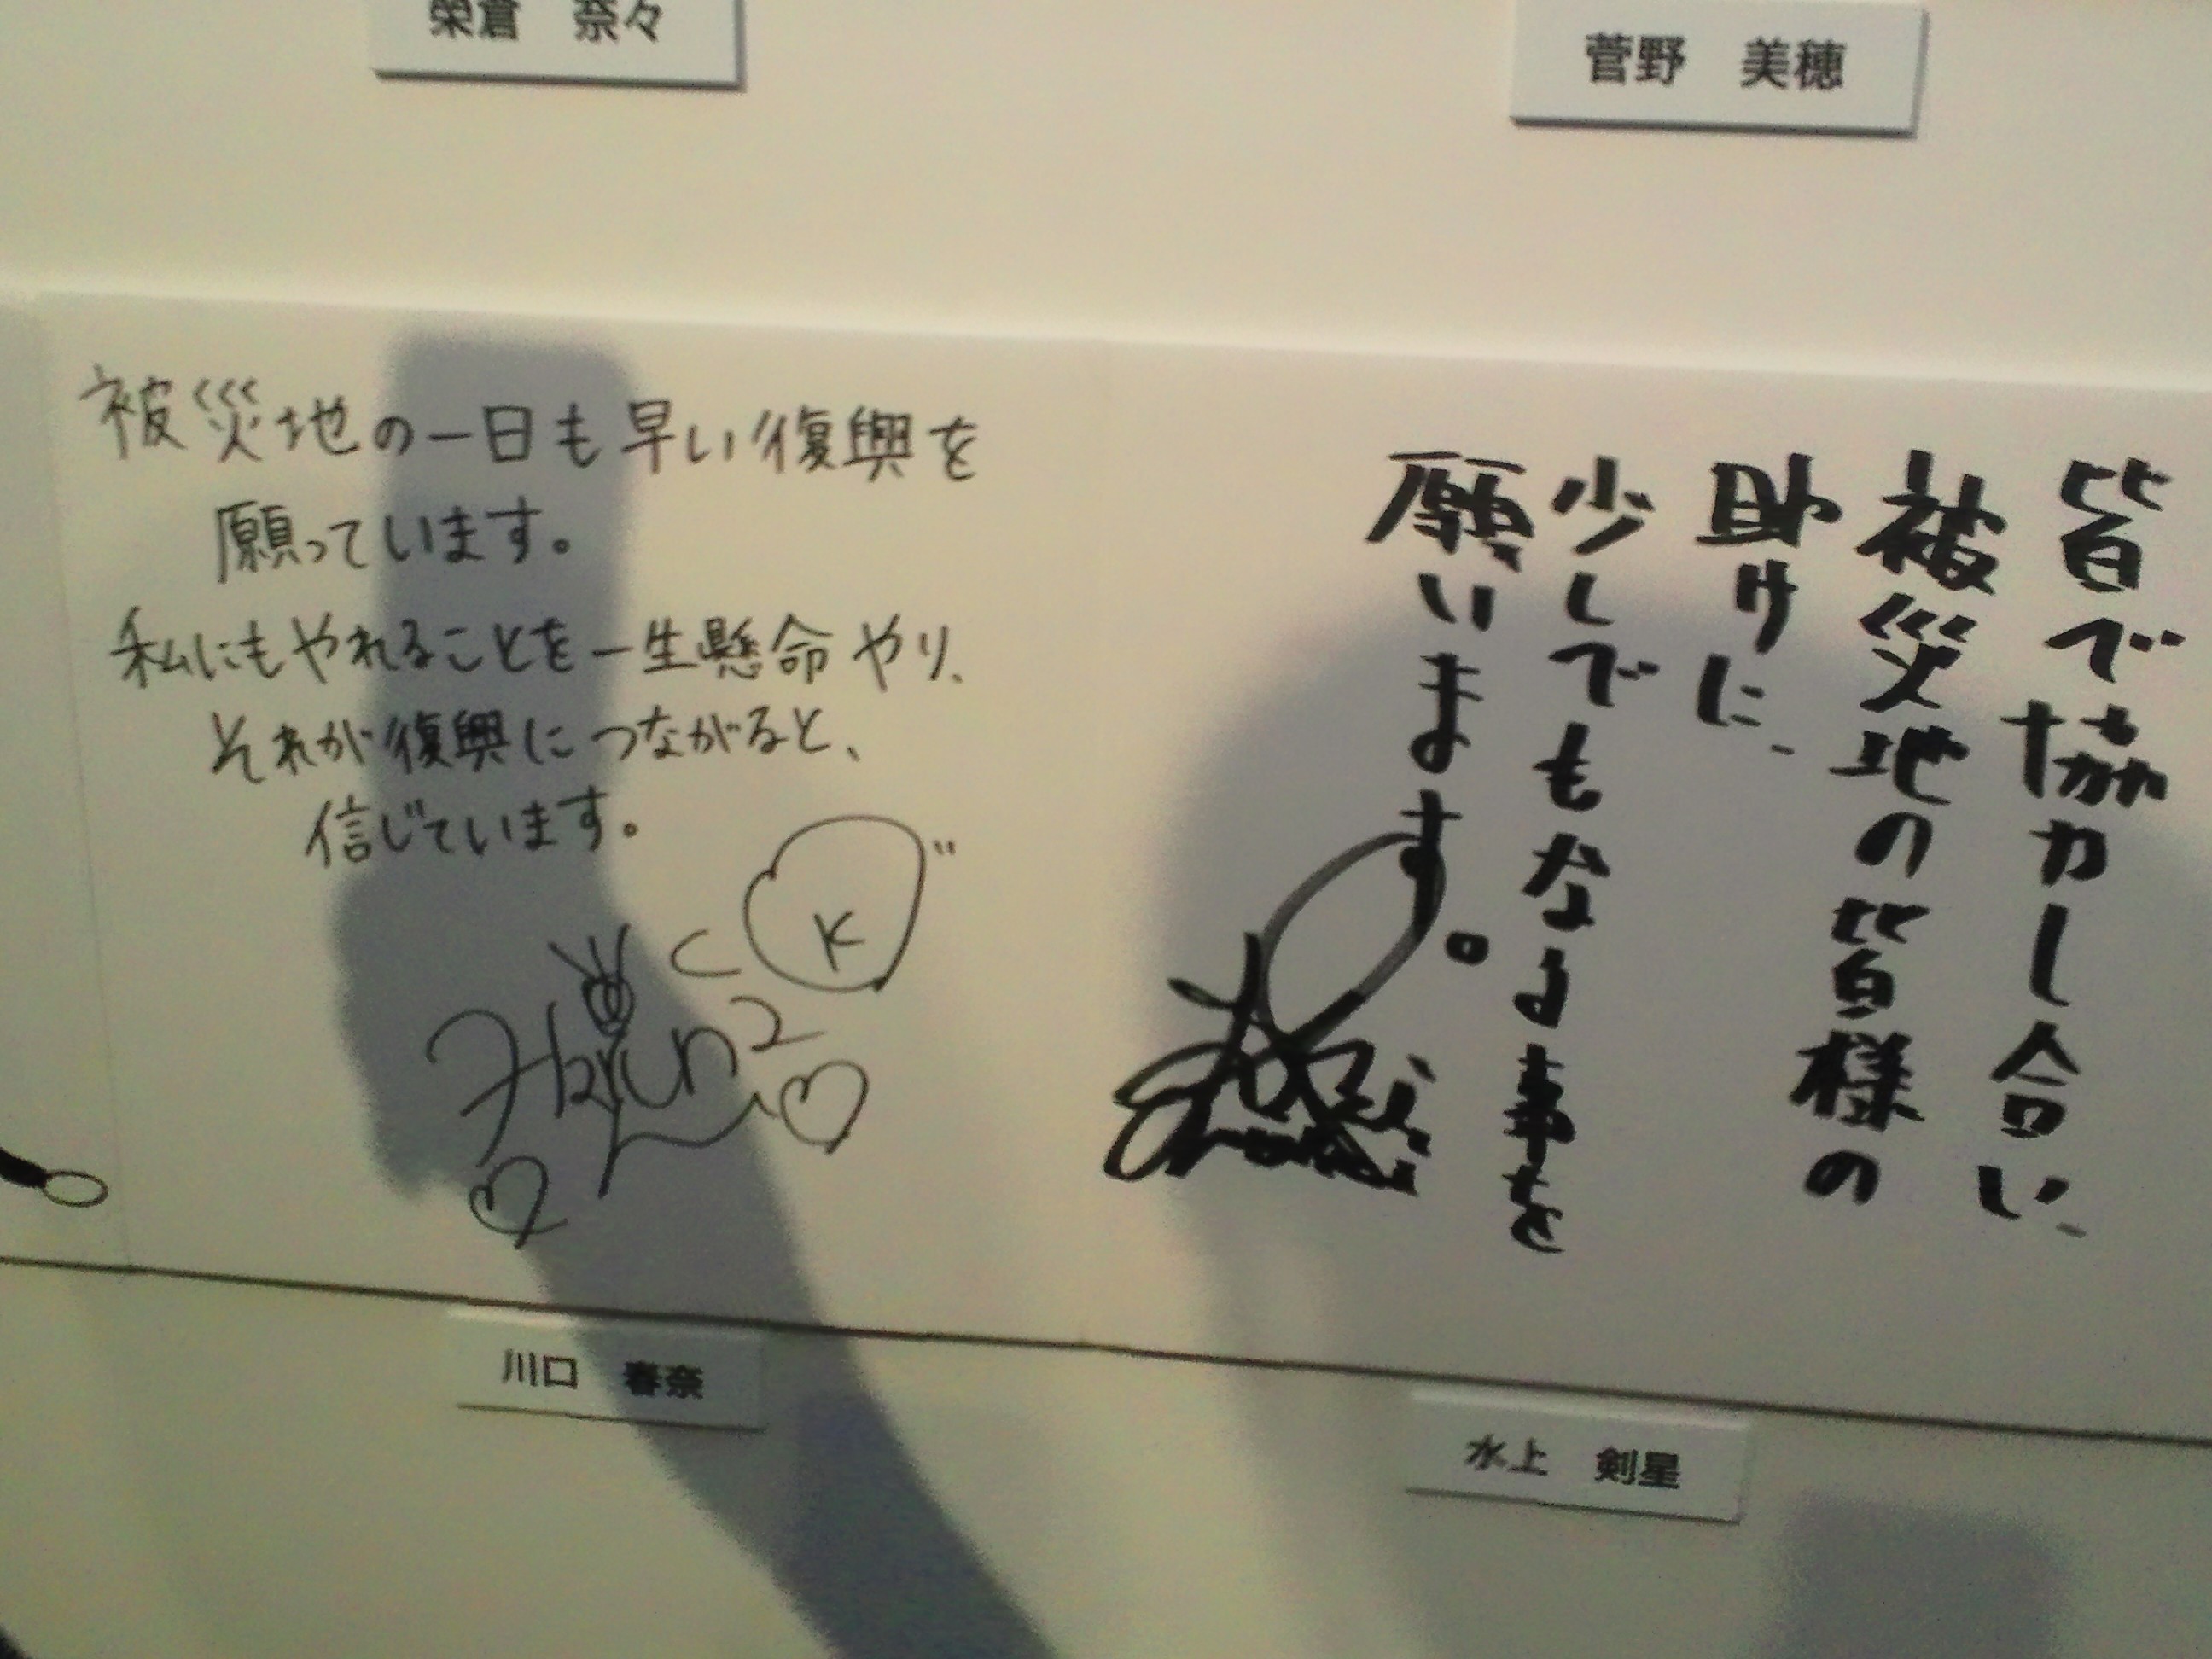 榮倉 奈々
菅野 美穂
被災地の一日も早い復興を
願っています。
私にもやれることを一生懸命やり、
それが復興につながると、
信じています。
K
川口 春奈
皆で協力し合い、
被災地の皆様の
助けに、
少しでもなる事を
願います。
水上 剣星